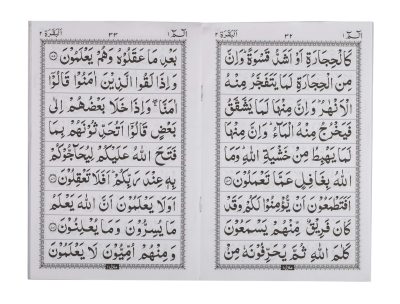 الٓمّٓ ١
٣٢
اَلْبَقَرَة ٢
كَالْحِجَارَةِ اَوْ اَشَدُّ قَسْوَةً ؕ وَاِنَّ
مِنَ الْحِجَارَةِ لَمَا يَتَفَجَّرُ مِنْهُ
الْاَنْهٰرُ ؕ وَاِنَّ مِنْهَا لَمَا يَشَّقَّقُ
فَيَخْرُجُ مِنْهُ الْمَآءُ ؕ وَاِنَّ مِنْهَا
لَمَا يَهْبِطُ مِنْ خَشْيَةِ اللّٰهِ ؕ وَمَا
اللّٰهُ بِغَافِلٍ عَمَّا تَعْمَلُوْنَ
اَفَتَطْمَعُوْنَ اَنْ يُّؤْمِنُوْا لَكُمْ وَقَدْ
كَانَ فَرِيْقٌ مِّنْهُمْ يَسْمَعُوْنَ
كَلٰمَ اللّٰهِ ثُمَّ يُحَرِّفُوْنَهٗ مِنْۢ
الٓمّٓ ١
٣٣
اَلْبَقَرَة ٢
بَعْدِ مَا عَقَلُوْهُ وَهُمْ يَعْلَمُوْنَ
وَاِذَا لَقُوا الَّذِيْنَ اٰمَنُوْا قَالُوْٓا
اٰمَنَّا ۖۚ وَاِذَا خَلَا بَعْضُهُمْ اِلٰى
بَعْضٍ قَالُوْٓا اَتُحَدِّثُوْنَهُمْ بِمَا
فَتَحَ اللّٰهُ عَلَيْكُمْ لِيُحَآجُّوْكُمْ
بِهٖ عِنْدَ رَبِّكُمْ ؕ اَفَلَا تَعْقِلُوْنَ
اَوَلَا يَعْلَمُوْنَ اَنَّ اللّٰهَ يَعْلَمُ
مَا يُسِرُّوْنَ وَمَا يُعْلِنُوْنَ
وَمِنْهُمْ اُمِّيُّوْنَ لَا يَعْلَمُوْنَ